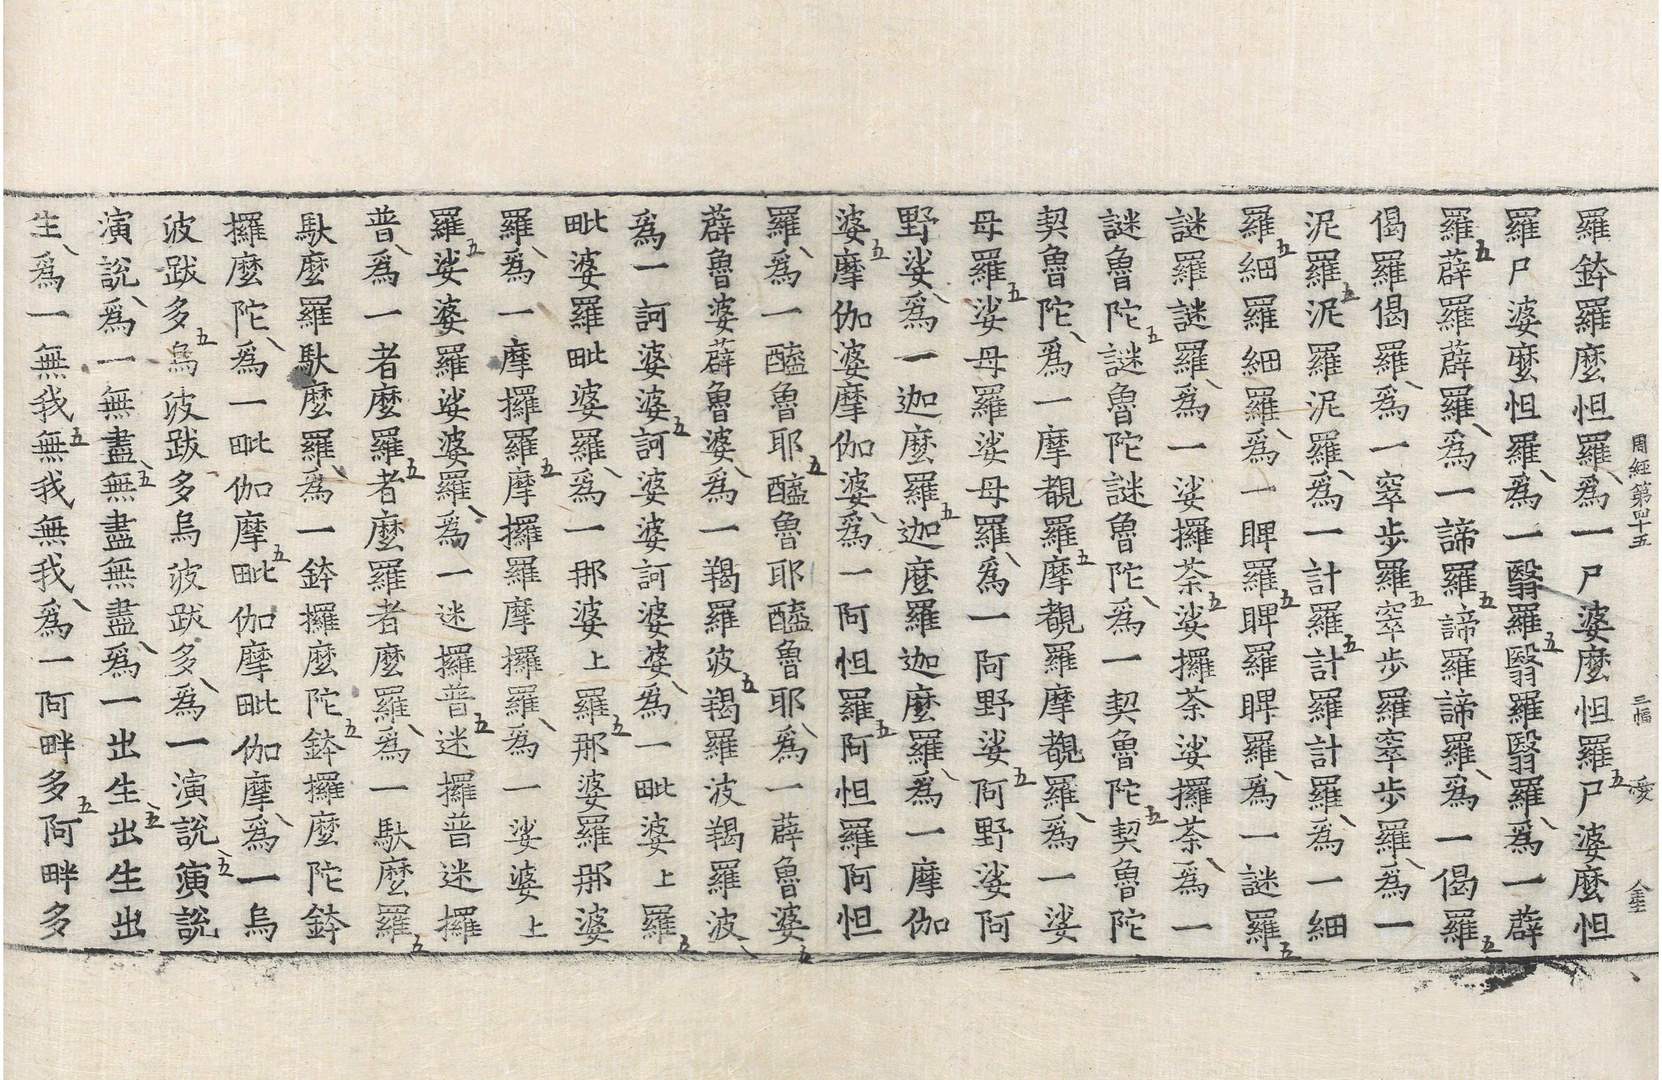 周經第四十五 三幅 愛
羅鉢羅麼怛羅爲一尸婆麼怛羅尸婆麼怛
羅尸婆麼怛羅爲一翳羅翳羅翳羅爲一薜
羅薜羅薜羅爲一諦羅諦羅諦羅爲一偈羅
偈羅偈羅爲一窣步羅窣步羅窣步羅爲一
泥羅泥羅泥羅爲一計羅計羅計羅爲一細
羅細羅細羅爲一睥羅睥羅睥羅爲一謎羅
謎羅謎羅爲一娑攞荼娑攞荼娑攞荼爲一
謎魯陀謎魯陀謎魯陀爲一契魯陀契魯陀
契魯陀爲一摩覩羅摩覩羅摩覩羅爲一娑
母羅娑母羅娑母羅爲一阿野娑阿野娑阿
野娑爲一迦麼羅迦麼羅迦麼羅爲一摩伽
婆摩伽婆摩伽婆爲一阿怛羅阿怛羅阿怛
羅爲一醯魯耶醯魯耶醯魯耶爲一薜魯婆
薜魯婆薜魯婆爲一羯羅波羯羅波羯羅波
爲一訶婆婆訶婆婆訶婆婆爲一毗婆上羅
毗婆羅毗婆羅爲一那婆上羅那婆羅那婆
羅爲一摩攞羅摩攞羅摩攞羅爲一娑婆上
羅娑婆羅娑婆羅爲一迷攞普迷攞普迷攞
普爲一者麼羅者麼羅者麼羅爲一馱麼羅
馱麼羅馱麼羅爲一鉢攞麼陀鉢攞麼陀鉢
攞麼陀爲一毗伽摩毗伽摩毗伽摩爲一烏
波跋多烏波跋多烏波跋多爲一演說演說
演說爲一無盡無盡無盡爲一出生出生出
生爲一無我無我無我爲一阿畔多阿畔多